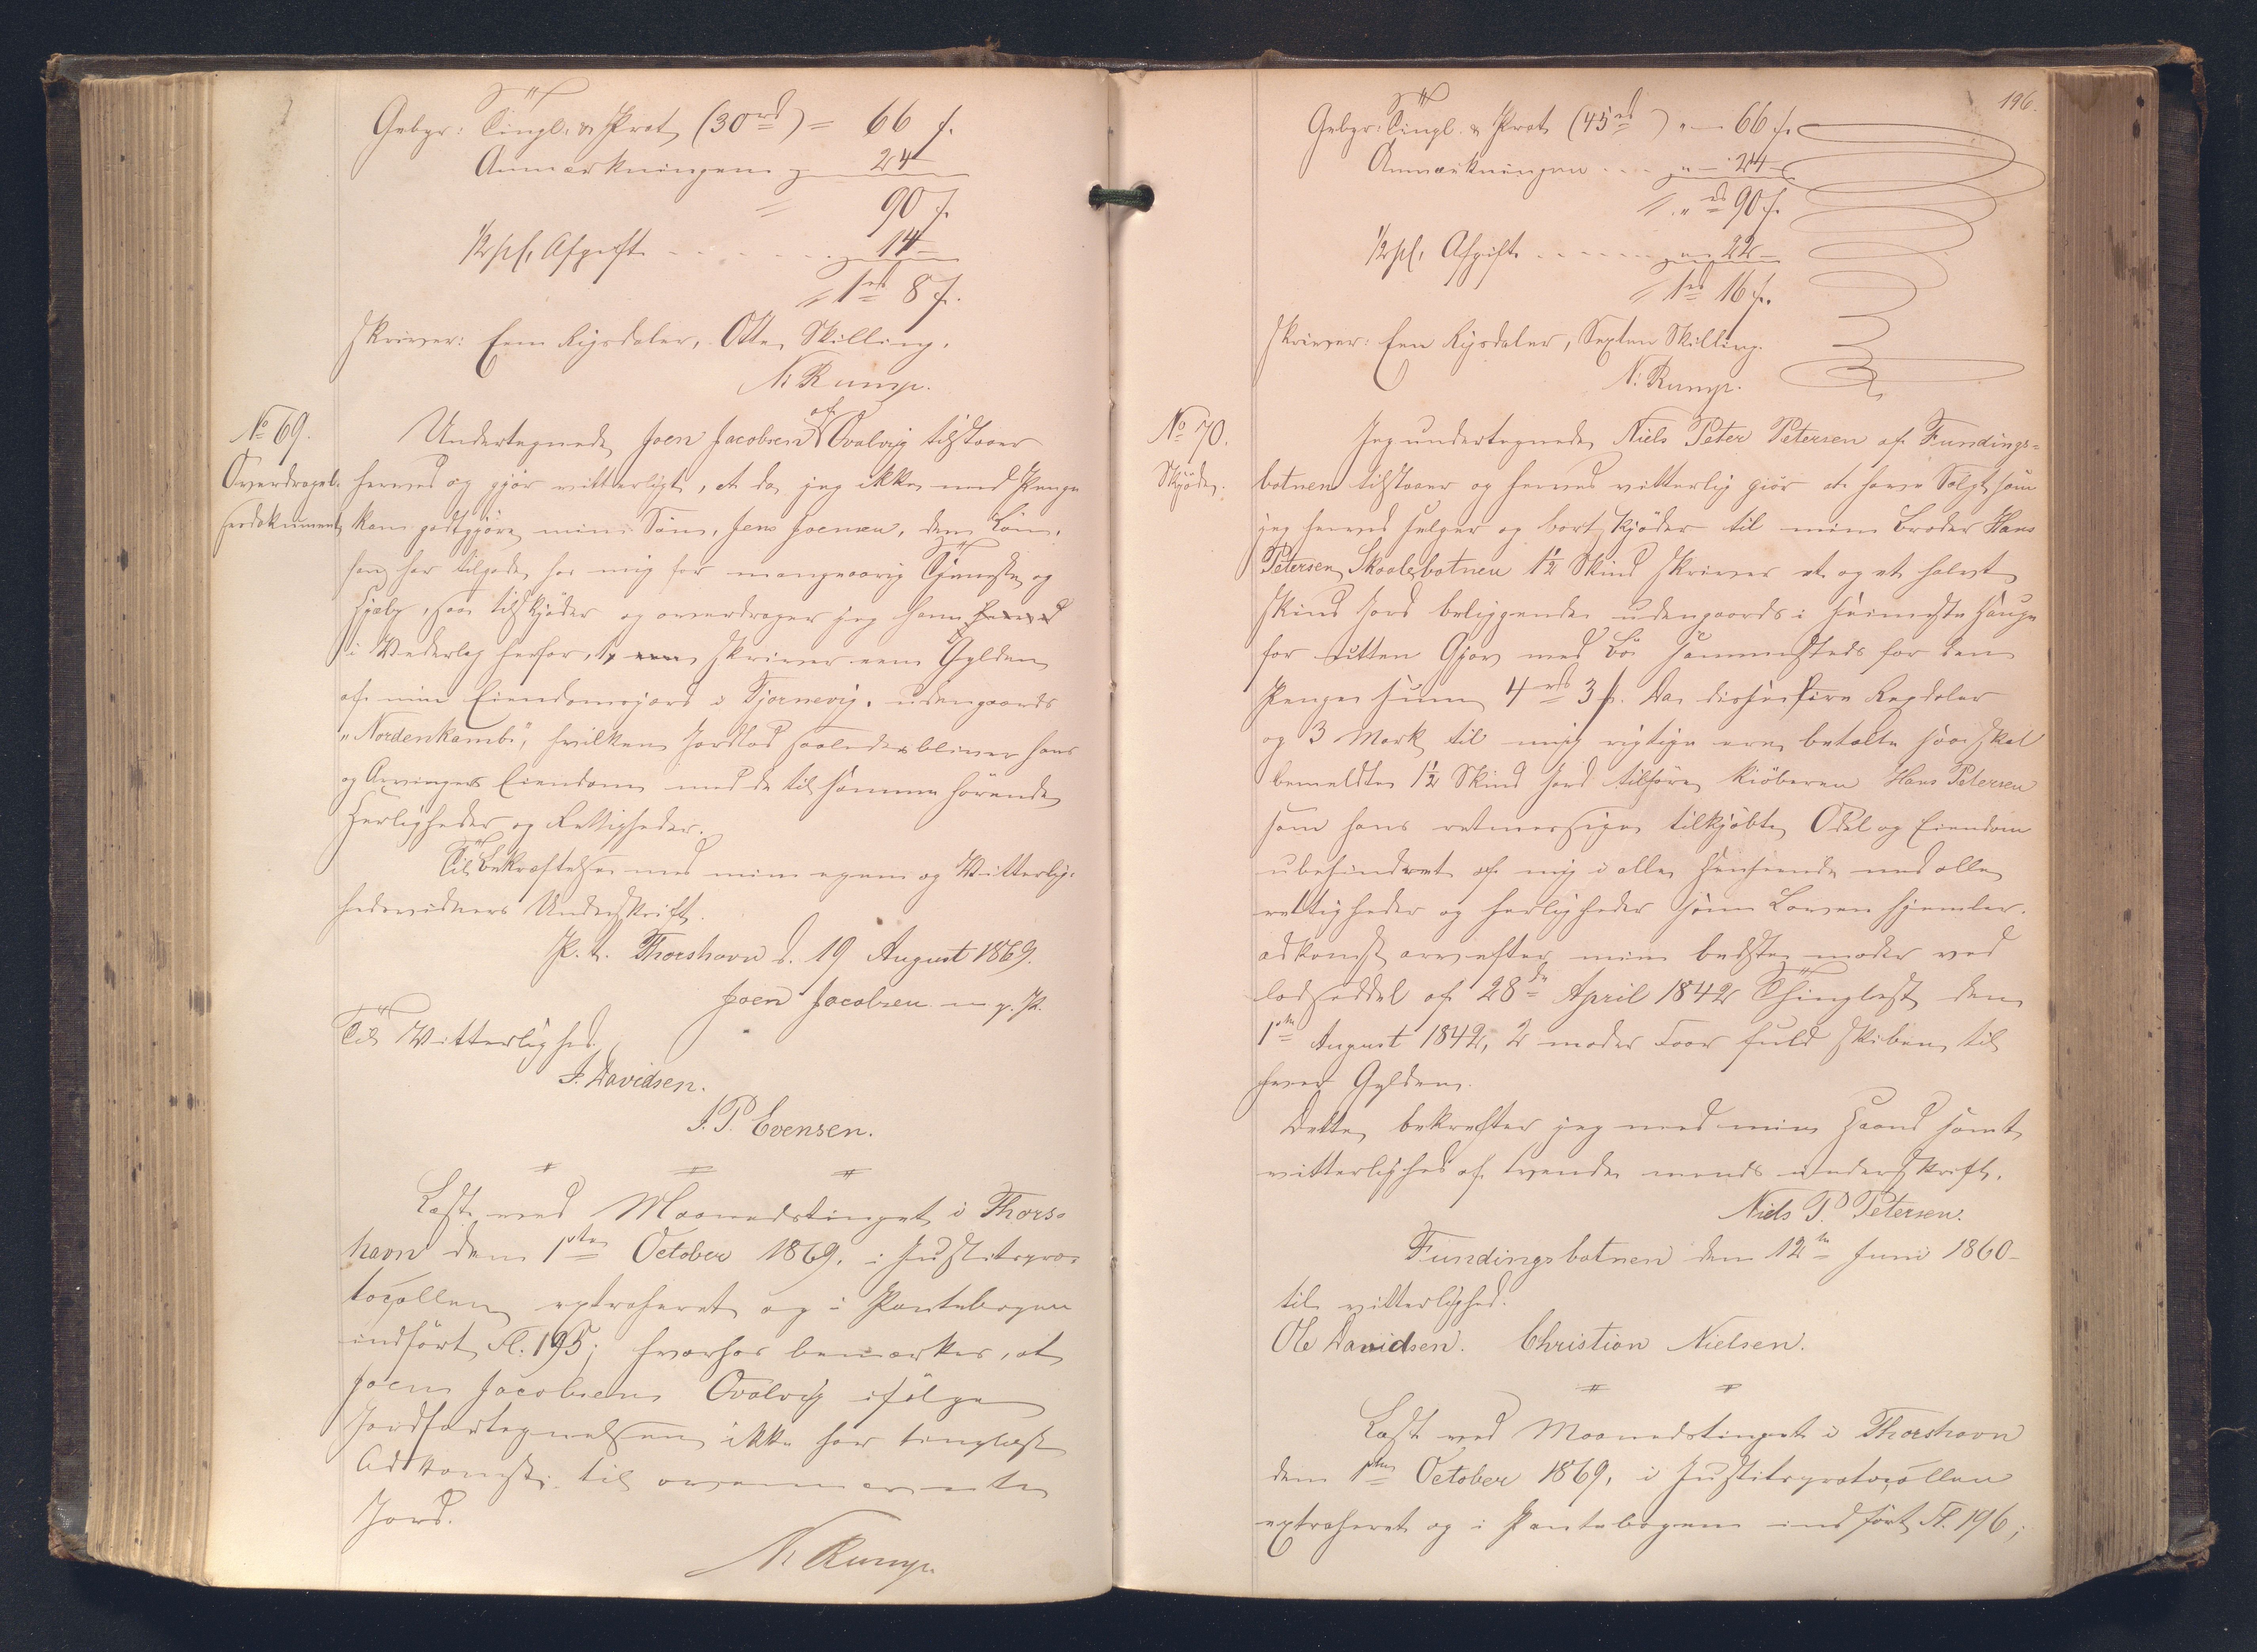 Gebyr: Tingl. & Prot. (30 rd) = 66 s.
Anmærkningen 24
90 s.
1/2 pC. Afgift 14
1 rd 8 s.
skriver: Een Rigsdaler, Otte Skilling.
N. Rump.
No 69.
Overdragel-
sesdokument
Undertegnede Joen Jacobsen af Qvalvig tilstaaer
herved og gjør vitterligt, at da jeg ikke med Penge
kan godtgjøre min Søn, Jens Joensen, den Løn,
han har tilgode hos mig for mangeaarig Tjeneste og
Hjælp, saa tilskjøder og overdrager jeg ham herved
i Vederlag herfor, 1, skriver een Gylden
af min Eiendomsjord i Tjørnevig, udengaards
"Nordenkambi", hvilken Jordlod saaledes bliver hans
og Arvingers Eiendom med de til samme hørende
Herligheder og Rettigheder.
Til Bekræftelse med min egen og Vitterlig-
hedsvidners Underskrift.
P. t. Thorshavn d. 19 August 1869.
Joen Jacobsen m. p. P.
Til Vitterlighed
J. Davidsen.
J. P. Evensen.
Læst ved Maanedstinget i Thors-
havn den 1ste October 1869, i Justitspro-
tocollen extraheret og i Pantebogen
indført Fl. 195; hvorhos bemærkes, at
Joen Jacobsen Qvalvig ifølge
Jordfortegnelsen ikke har tinglæst
Adkomst til ovennævnte
Jord.
N. Rump.
196.
Gebyr: Tingl. & Prot. (45 rd) " — 66 s.
Anmærkningen " — 24
" rd 90 s.
1/2 pC. Afgift 22
1 rd 16 s.
skriver: Een Rigsdaler, Sexten Skilling.
N. Rump.
No 70.
Skjøde.
Jeg undertegnede Niels Peter Petersen af Fundings-
botnen tilstaaer og herved vitterlig giør at have Solgt som
jeg herved sælger og bortskjøder til min Broder Hans
Petersen Skaalebotnen 1 1/2 Skind skriver et og et halvt
skind Jord beliggende udengaords i Heimeste Hauge
for utten Gjov med Bø sammesteds for den
Penge Sum 4 rd 3 p. Da disse fire Regdaler
og 3 Mark til mig rigtige ere betalte saa skal
bemeldte 1 1/2 Skind Jord tilhøre kiøberen Hans Petersen
som hans retmessige tilkjøbte Odel og Eiendom
ubehindret af mig i alle Henseende med alle
rettigheder og herligheder som Loven hjemler.
adkomst arv efter min bedste moder ved
lodseddel af 28de April 1842 Thinglæst den
1te August 1842, 2 moder Foor fuld skiben til
hver Gylden.
Dette bekrefter jeg med min Haand samt
vitterlighed af tvende mends underskrift.
Niels P. Petersen.
Fundingsbotnen den 12te Juni 1860
til vitterlighed.
Ole Davidsen. Christian Nielsen.
Læst ved Maanedstinget i Thorshavn
den 1ste October 1869, i Justitsprotocollen
extraheret og i Pantebogen indført Fl. 196;